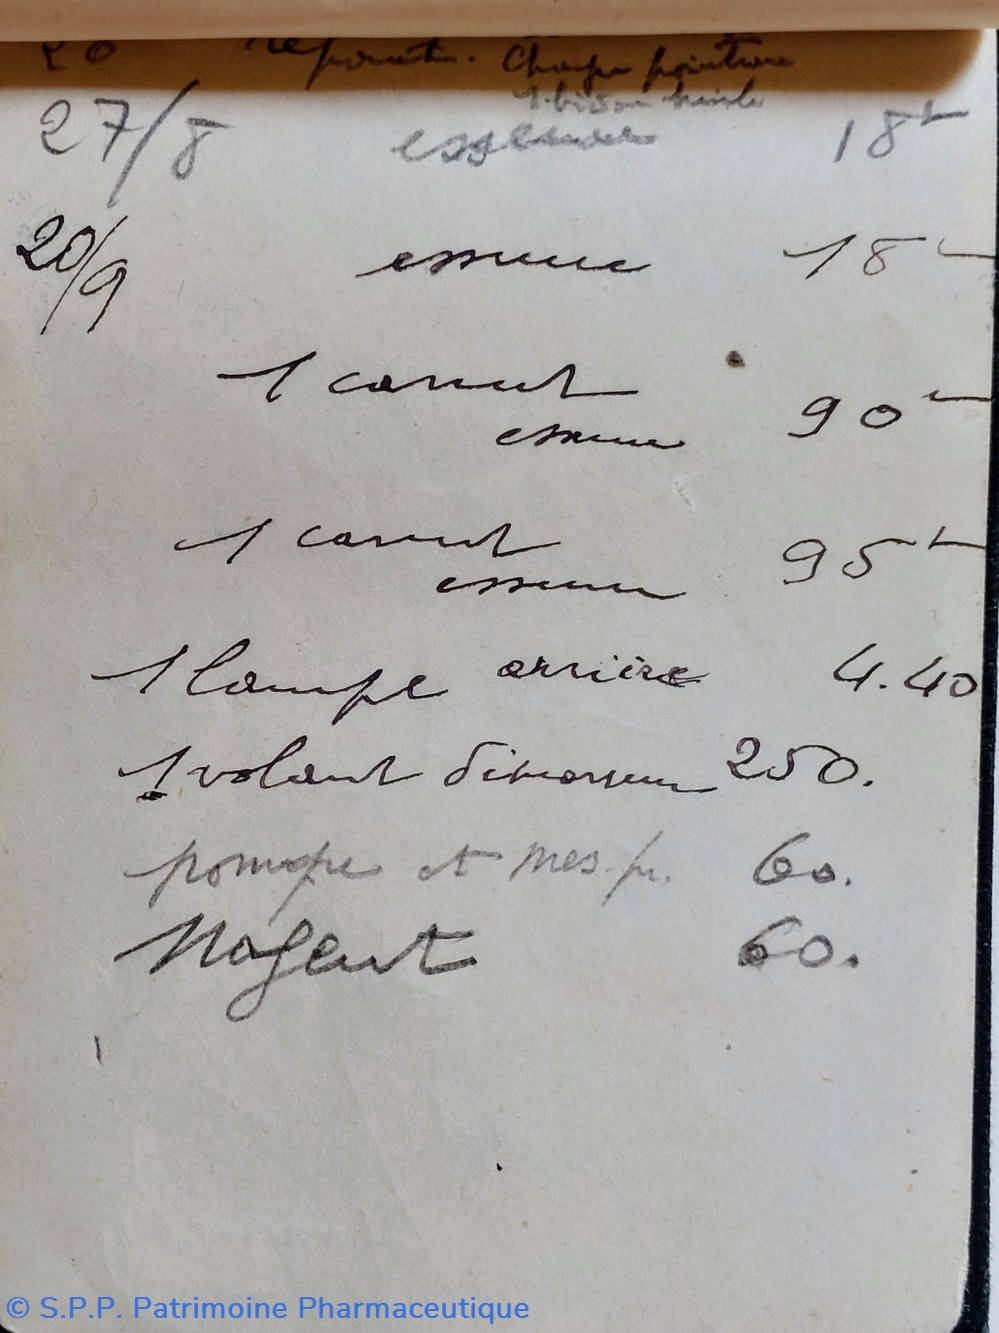 20
27/8 essence 18 L
20/9 essence 18 L
1 carnet
essence 90 L
1 carnet
essence 95 L
1 lampe arrière 4.40
1 volant démarreur 250.
pompe et mes. pr. 60.
Nogent 60.
© S.P.P. Patrimoine Pharmaceutique